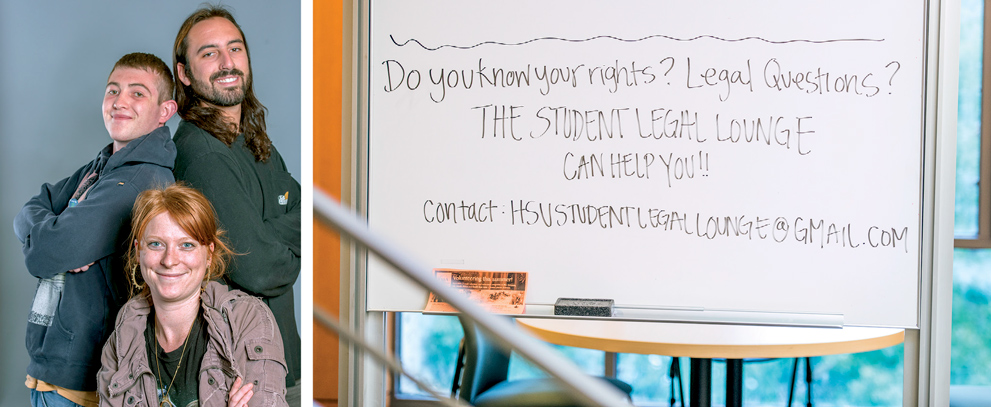 Do you know your rights? Legal Questions?
THE STUDENT LEGAL LOUNGE
CAN HELP YOU!!
Contact: HSUSTUDENTLEGALLOUNGE@GMAIL.COM
Volunteering this summer?